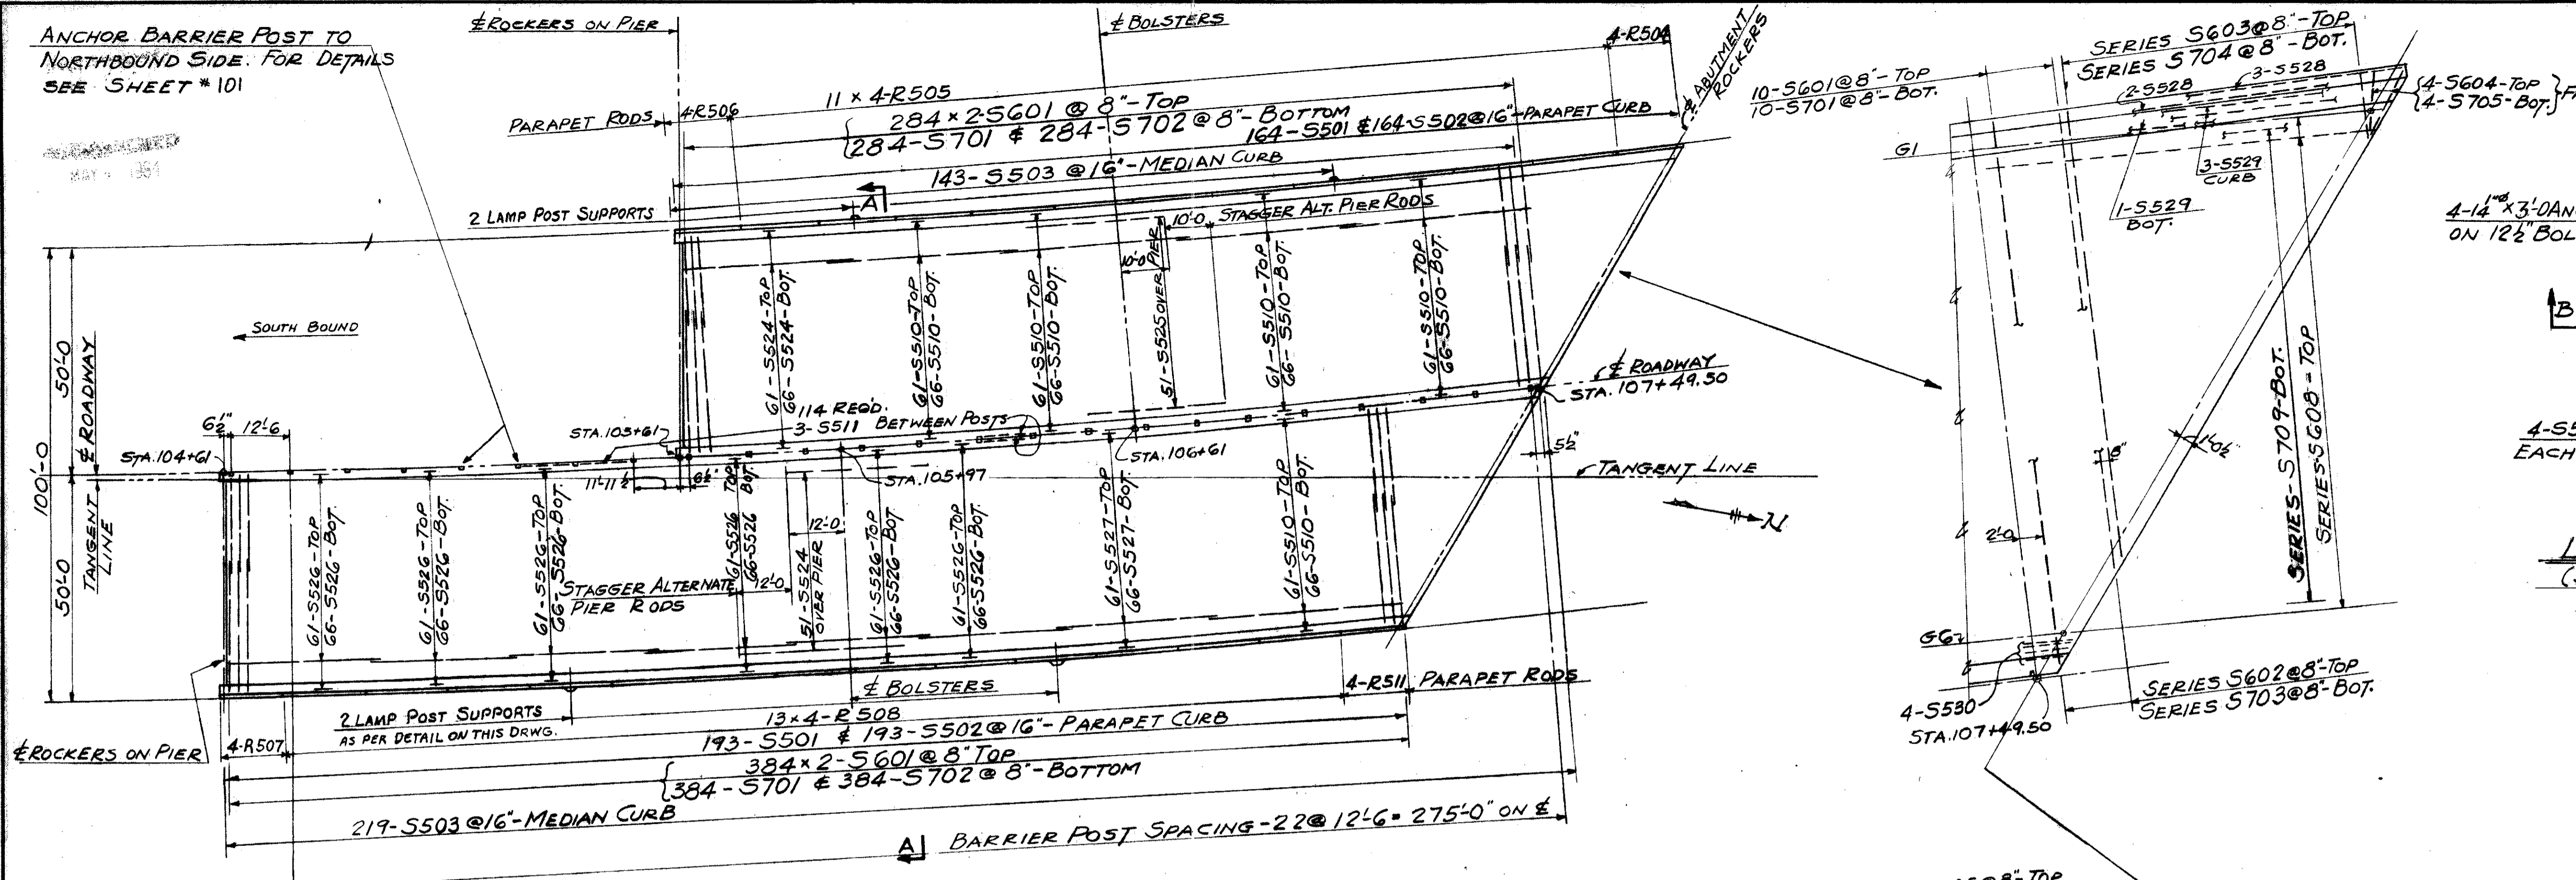 ANCHOR BARRIER POST TO
NORTHBOUND SIDE. FOR DETAILS
SEE SHEET #101
MAY
℄ ROCKERS ON PIER
℄ BOLSTERS
4-R504
℄ ABUTMENT
ROCKERS
PARAPET RODS
4-R506
11 × 4-R505
284 × 2-S601 @ 8"-TOP
284-S701 & 284-S702 @ 8"-BOTTOM
164-S501 & 164-S502 @ 16"-PARAPET CURB
143-S503 @ 16"-MEDIAN CURB
A
2 LAMP POST SUPPORTS
10'-0
STAGGER ALT. PIER RODS
10'-0
61-S524-TOP
66-S524-BOT.
61-S510-TOP
66-S510-BOT.
61-S510-TOP
66-S510-BOT.
51-S525 OVER PIER
61-S510-TOP
66-S510-BOT.
61-S510-TOP
66-S510-BOT.
SOUTH BOUND
50'-0
℄ ROADWAY
100'-0
50'-0
TANGENT
LINE
6½"
12'-6
STA. 104+61
STA. 105+61
114 REQ'D.
3-S511 BETWEEN POSTS
11'-11½
6½"
STA. 105+97
STA. 106+61
℄ ROADWAY
STA. 107+49.50
5½"
TANGENT LINE
N
61-S526-TOP
66-S526-BOT.
61-S526-TOP
66-S526-BOT.
61-S526-TOP
66-S526-BOT.
61-S526 TOP
66-S526 BOT.
12'-0
51-S524
OVER PIER
61-S526-TOP
66-S526-BOT.
61-S526-TOP
66-S526-BOT.
61-S527-TOP
66-S527-BOT.
61-S510-TOP
66-S510-BOT.
STAGGER ALTERNATE
PIER RODS
12'-0
℄ ROCKERS ON PIER
2 LAMP POST SUPPORTS
AS PER DETAIL ON THIS DRWG.
℄ BOLSTERS
4-R511
PARAPET RODS
4-R507
13 × 4-R508
193-S501 & 193-S502 @ 16"-PARAPET CURB
384 × 2-S601 @ 8" TOP
384-S701 & 384-S702 @ 8"-BOTTOM
219-S503 @ 16"-MEDIAN CURB
A
BARRIER POST SPACING-22 @ 12'-6 = 275'-0" ON ℄
10-S601 @ 8"-TOP
10-S701 @ 8"-BOT.
SERIES S603 @ 8"-TOP
SERIES S704 @ 8"-BOT.
2-S528
3-S528
4-S604-TOP
4-S705-BOT.
G1
3-S529
CURB
1-S529
BOT.
4-1¼"ø × 3'-0 AN
ON 12½" BOL
B
4-S5
EACH
2'-0
8"
1'-0½"
SERIES-S709-BOT.
SERIES-S608-TOP
G6
4-S530
STA. 107+49.50
SERIES S602 @ 8"-TOP
SERIES S703 @ 8"-BOT.
@ 8"-TOP